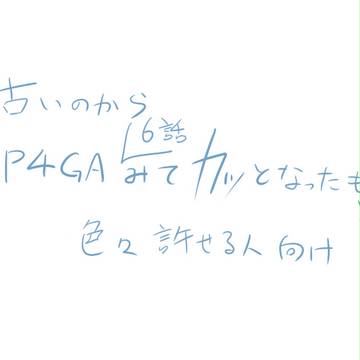 古いのから
6話
P4GA みてカッとなったも
色々許せる人向け